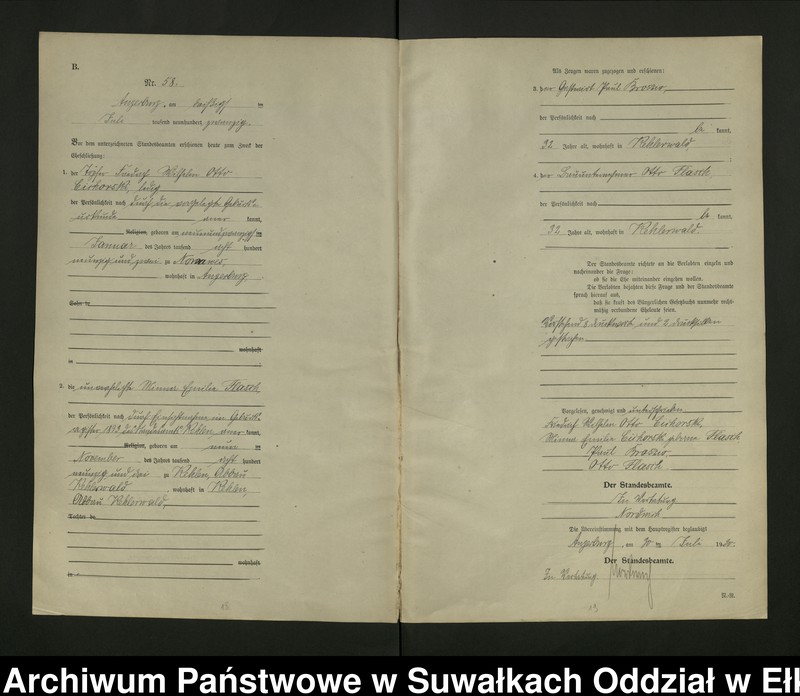 B.
Nr. 58.
Angerburg, am dreißigsten
Juli tausend neunhundert zwanzig
Vor dem unterzeichneten Standesbeamten erschienen heute zum Zweck der
Eheschließung:
1. der Töpfer Friedrich Wilhelm Otto
ledig
der Persönlichkeit nach durch die vorgelegte Geburts-
urkunde aner kannt,
Religion, geboren am neunundzwanzigsten
Januar des Jahres tausend acht hundert
neunzig und zwei zu
wohnhaft in Angerburg
Sohn de
wohnhaft
in
2. die unverehelichte Minna Emilie Flasch
der Persönlichkeit nach durch Einsichtnahme im Geburts-
register 1893 Standesamt Kehlen aner kannt,
Religion, geboren am neun
November des Jahres tausend acht hundert
neunzig und drei zu Kehlen, Abbau
Kehlerwald, wohnhaft in Kehlen,
Abbau Kehlerwald,
Tochter de
wohnhaft
in
Als Zeugen waren zugezogen und erschienen:
3. der Gastwirt Paul
der Persönlichkeit nach
be kannt,
32 Jahre alt, wohnhaft in Kehlerwald,
4. der Bauunternehmer Otto Flasch
der Persönlichkeit nach
be kannt,
32 Jahre alt, wohnhaft in Kehlerwald.
Der Standesbeamte richtete an die Verlobten einzeln und
nacheinander die Frage:
ob sie die Ehe miteinander eingehen wollen.
Die Verlobten bejahten diese Frage und der Standesbeamte
sprach hierauf aus,
daß sie kraft des Bürgerlichen Gesetzbuchs nunmehr recht-
mäßig verbundene Eheleute seien.
Vorstehend Druckwort und 6 Druckzeilen
gestrichen
Vorgelesen, genehmigt und unterschrieben
Friedrich Wilhelm Otto
Minna Emilie geborene Flasch
Paul
Otto Flasch
Der Standesbeamte.
In Vertretung
Die Übereinstimmung mit dem Hauptregister beglaubigt
Angerburg, am 30 ten Juli 1920.
Der Standesbeamte.
In Vertretung
Archiwum Państwowe w Suwałkach Oddział w Eł